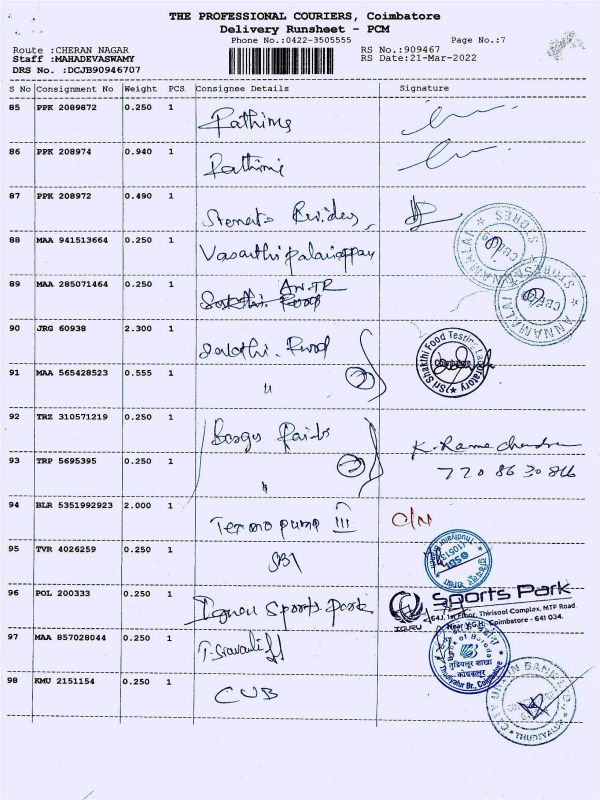 THE PROFESSIONAL COURIERS, Coimbatore
Delivery Runsheet - PCM
Phone No.:0422-3505555
Page No.:7
Route :CHERAN NAGAR
RS No.:909467
Staff :MAHADEVASWAMY
RS Date:21-Mar-2022
DRS No. :DCJB90946707
S No Consignment No Weight PCS Consignee Details Signature
85 PPK 2089872 0.250 1
Rathima
86 PPK 208974 0.940 1
Rathima
87 PPK 208972 0.490 1
88 MAA 941513664 0.250 1
Vasanthi palaniappan
ANNAMALAI STORES
89 MAA 285071464 0.250 1
AN.TR
ANNAMALAI STORES
90 JRG 60938 2.300 1
Sakthi. Food
Sri Shakthi Food Testing Laboratory
Coimbatore
91 MAA 565428523 0.555 1
"
92 TRZ 310571219 0.250 1
Berger Paints
K. Ramachandran
93 TRP 5695395 0.250 1
"
94 BLR 5351992923 2.000 1
Termo puma III
O/N
95 TVR 4026259 0.250 1
SBI
96 POL 200333 0.250 1
Igneu Sports Park
Sports Park
64J, 1st Floor, Thirisool Complex, MTP Road,
Near KGH, Coimbatore - 641 034.
97 MAA 857028044 0.250 1
T. Sravauli
Bank of Baroda
तुडियलूर शाखा
कोयंबतूर
Thudiyalur Br., Coimbatore
98 KMU 2151154 0.250 1
CUB
CITY UNION BANK LTD
THUDIYALUR